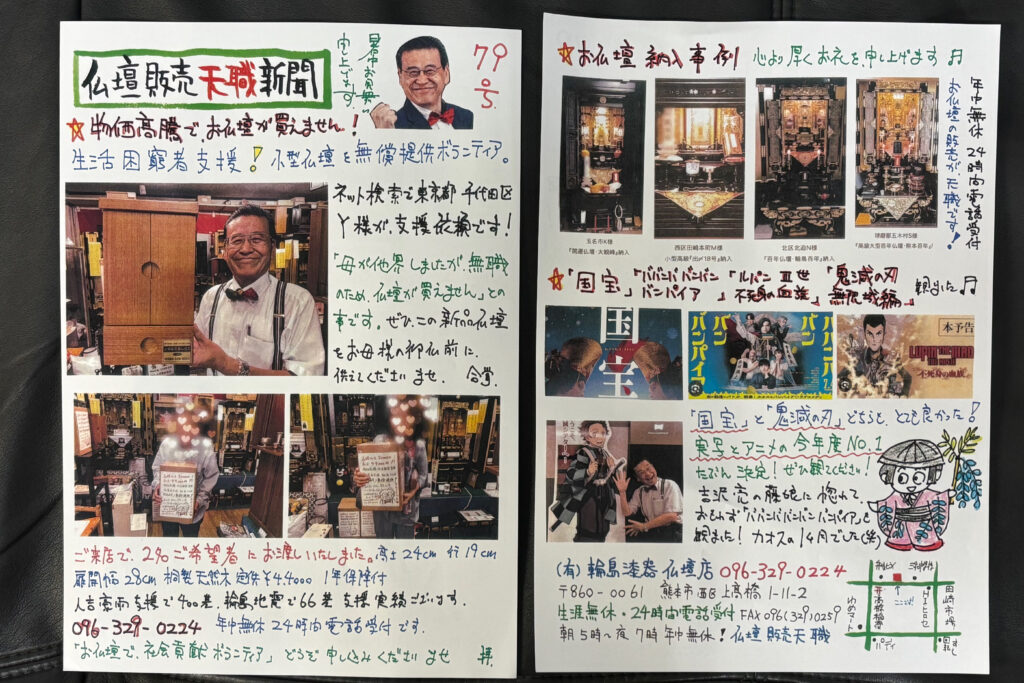 仏壇販売天職新聞
暑中お見舞い
申し上げます。
79号
☆物価高騰で、お仏壇が買えません!
生活困窮者支援!小型仏壇を無償提供ボランティア。
ネット検索で東京都千代田区
Y様が、支援依頼です!
「母が他界しましたが、無職
のため、仏壇が買えません」との
事です。ぜひ、この新品仏壇
をお母様の御仏前に、
供えてくださいませ。 合掌
ご来店で、2名ご希望者にお渡しいたしました。高さ24cm 行19cm
扉開幅28cm 桐製天然木 定価¥44000 1年保障付
人吉豪雨支援で400基、輪島地震で66基 支援実績ございます。
096-329-0224 年中無休24時間電話受付です。
「お仏壇で、社会貢献ボランティア」どうぞ申し込みくださいませ 拝
☆お仏壇納入事例 心より厚くお礼を申し上げます♬
年中無休24時間電話受付
お仏壇の販売が、天職です!
玉名市K様
『開運仏壇・大観峰』納入
西区田崎本町M様
小型高級『出〆18号』納入
北区北迫N様
『百年仏壇・輪島百年』納入
球磨郡五木村S様
『高級大型百年仏壇・熊本百年』
☆「国宝」「ババンババンバン
バンパイア」「ルパン三世
不死身の血族」「鬼滅の刃
無限城編」観ました♬
国宝
ババンババンバン
バンパイア
本予告
LUPIN THE IIIRD
不死身の血族
「国宝」と「鬼滅の刃」どちらも、とても良かった!
実写とアニメの今年度No.1
たぶん決定!ぜひ観てください!
吉沢亮の藤娘に惚れて、
おもわず「ババンババンバンバンパイア」も
観ました!カオスの1ヶ月でした(笑)
(有)輪島漆器仏壇店 096-329-0224
〒860-0061 熊本市西区上高橋1-11-2
生涯無休・24時間電話受付 FAX 096(329)0259
朝5時~夜7時 年中無休!仏壇販売天職
ここだよ!
高橋稲荷
ゆめマート
田崎市場